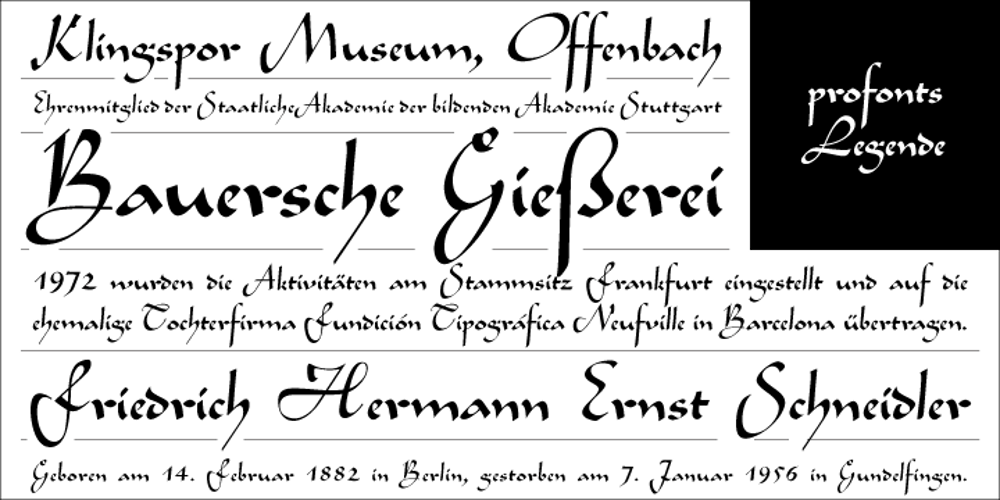 Klingspor Museum, Offenbach
Ehrenmitglied der Staatliche Akademie der bildenden Akademie Stuttgart
Bauersche Gießerei
profonts
Legende
1972 wurden die Aktivitäten am Stammsitz Frankfurt eingestellt und auf die
ehemalige Tochterfirma Fundición Tipográfica Neufville in Barcelona übertragen.
Friedrich Hermann Ernst Schneidler
Geboren am 14. Februar 1882 in Berlin, gestorben am 7. Januar 1956 in Gundelfingen.